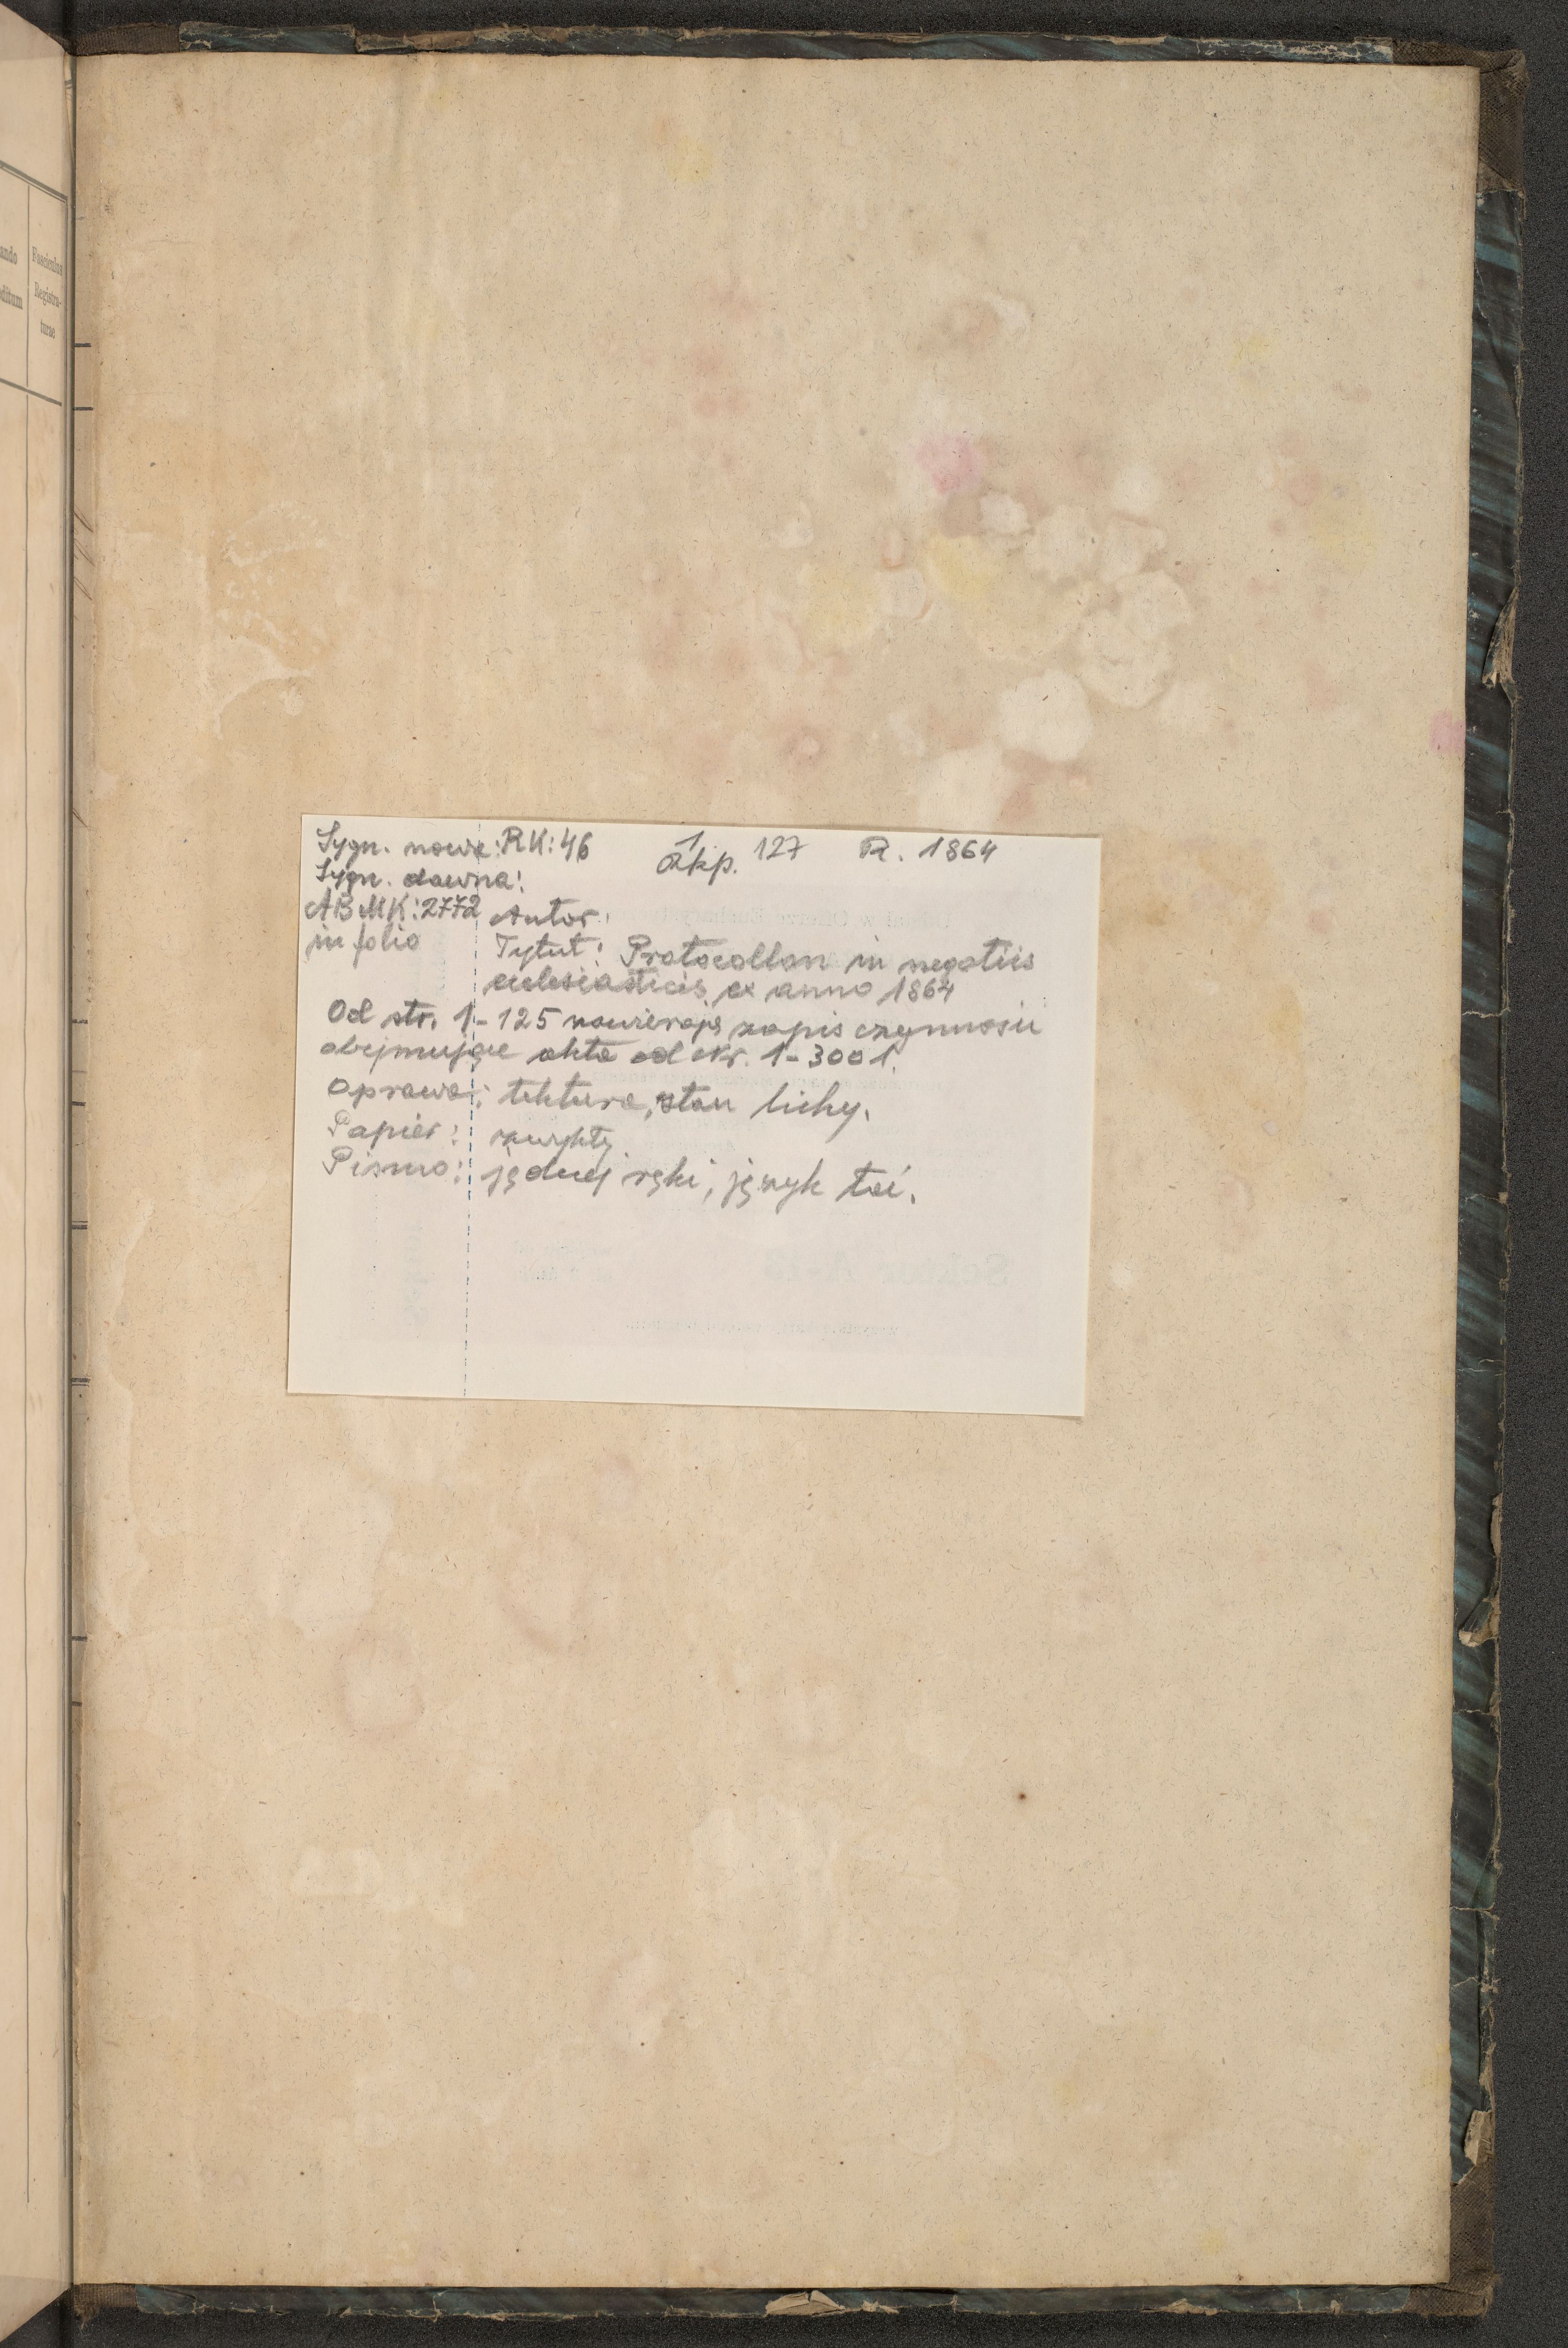 ando
editum
Fasciculus
Registra-
turae
Sygn. nowa: RK: 46 1 Rkp. 127 R. 1864
Sygn. dawna:
ABMK: 2772
in folio
Autor:
Tytuł: Protocollon in negotiis
ecclesiasticis ex anno 1864
Od str. 1-125 zawieraję zapis czynności
obejmujące akta od Nr. 1-3001.
Oprawa: tektura, stan lichy.
Papier: zwykły
Pismo: jednej ręki, język łać.